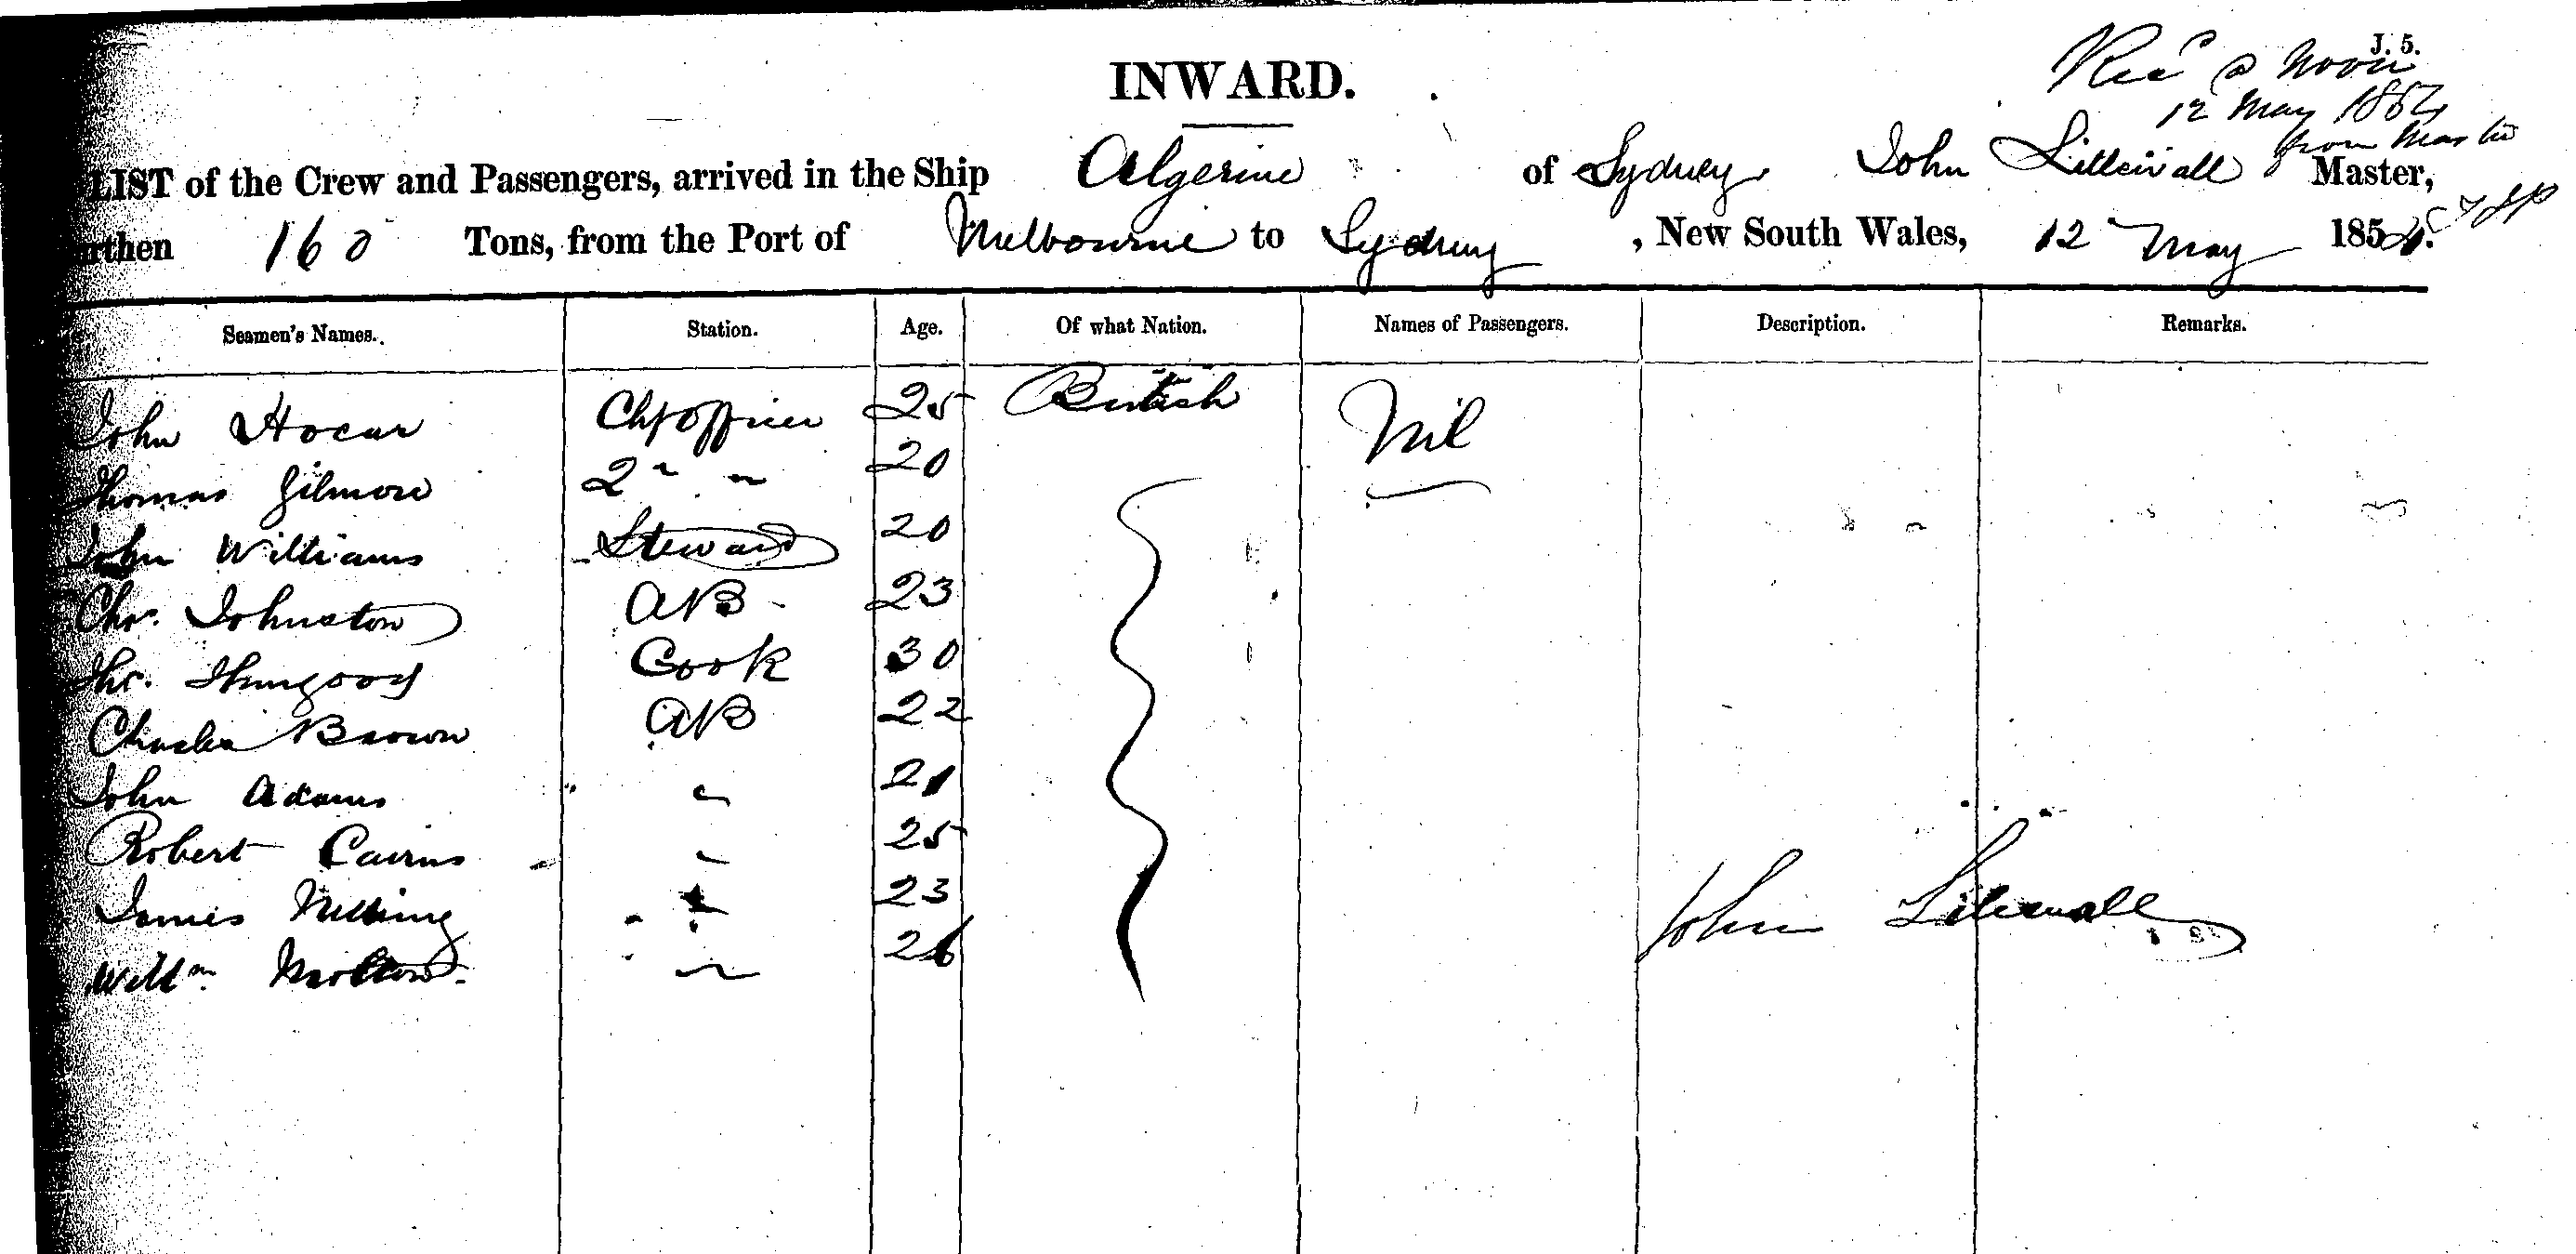 J. 5.
Recd @ Noon
12 May 1854
from Master
INWARD.
LIST of the Crew and Passengers, arrived in the Ship Algerine of Sydney John Littlewall Master,
Burthen 160 Tons, from the Port of Melbourne to Sydney, New South Wales, 12 May 1854.
Seamen's Names. Station. Age. Of what Nation. Names of Passengers. Description. Remarks.
John Hocar Chf Officer 25 British Nil
Thomas Gilmore 2 " " 20
John Williams Steward 20
Chr. Johnston AB 23
Cook 30
Charles Brown AB 22
John Adams " 21
Robert Cairns " 25
James " 23
Willm " 26
John